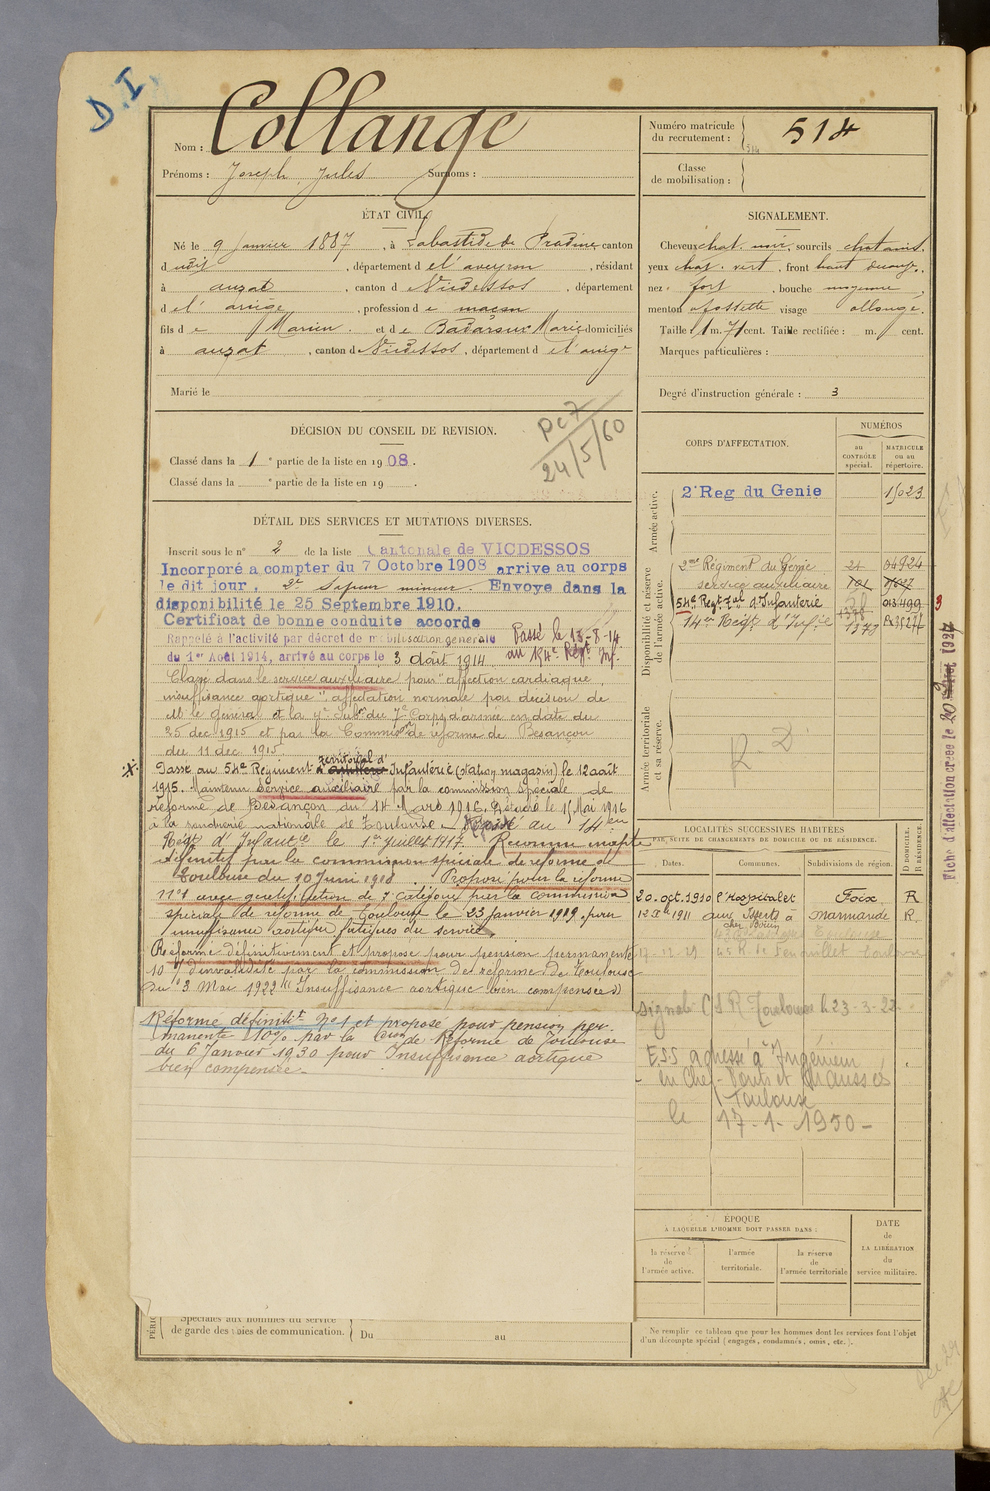 D.I.
Nom : Collange
Prénoms : Joseph Jules Surnoms :
Numéro matricule du recrutement : 514
Classe de mobilisation :
ÉTAT CIVIL
Né le 9 Janvier 1887, à Labastide de Pradines canton
d udit, département d e l'aveyron, résidant
à auzat, canton d Vicdessos, département
d e l'ariège, profession d e maçon
fils d e Marien et d e Marie domiciliés
à auzat, canton d Vicdessos, département d e l'ariège
Marié le
SIGNALEMENT.
Cheveux chat. noir, sourcils chatains.
yeux chat. vert, front haut
nez fort, bouche moyenne,
menton a fossette visage allongé.
Taille 1 m. 71 cent. Taille rectifiée : m. cent.
Marques particulières :
Degré d'instruction générale : 3
DÉCISION DU CONSEIL DE REVISION.
Classé dans la 1e partie de la liste en 1908.
Classé dans la e partie de la liste en 19 .
Pc 7
24/5/60
DÉTAIL DES SERVICES ET MUTATIONS DIVERSES.
Inscrit sous le n° 2 de la liste Cantonale de VICDESSOS
Incorporé a compter du 7 Octobre 1908 arrive au corps
le dit jour, 2e Sapeur mineur. Envoye dans la
disponibilité le 25 Septembre 1910.
Certificat de bonne conduite accorde
Rappelé à l'activité par décret de mobilisation generale
du 1er Août 1914, arrivé au corps le 3 août 1914
Passé le 13-8-14
au 154e Régt Inf.
Classé dans le service auxiliaire pour "affection cardiaque,
insuffisance aortique", affectation normale par décision de
M. le Général et la 4e Subon du 7e Corps d'armée en date du
25 déc 1915 et par la Commison de réforme de Besançon
du 11 déc 1915
Passé au 54e Régiment territorial d' Infanterie (station magasin) le 12 août
1915. Maintenu service auxiliaire par la commission spéciale de
réforme de Besançon du 14 Mars 1916. Détaché le 15 Mai 1916
à la poudrerie nationale de Toulouse. Passé au 14 eme
Régt d'Infancie le 1er Juillet 1917. Reconnu inapte
définitif par la commission spéciale de réforme de
Toulouse du 10 Juin 1918. Proposé pour la réforme
n°1 avec gratification de 7e catégorie par la commission
spéciale de réforme de Toulouse le 23 Janvier 1919 pour
insuffisance aortique fatigues du service
Réformé définitivement et proposé pour pension permanente
10 % d'invalidité par la commission de réforme de Toulouse
du 3 Mai 1922 "Insuffisance aortique bien compensée"
Réformé définitit n°1 et proposé pour pension per-
manente 10% par la Con de Réforme de Toulouse
du 6 Janvier 1930 pour Insuffisance aortique
bien compensée.
Spéciales aux hommes du service
de garde des voies de communication.
Du au
CORPS D'AFFECTATION.
NUMÉROS
au CONTRÔLE spécial.
MATRICULE ou au répertoire.
Armée active.
2e Reg du Genie 15023
Disponibilité et réserve de l'armée active.
2me Régiment du Génie 21 04924
service auxiliaire 101
54e Regt Tal d'Infanterie 013499
14e Régt d'Infie 1378
3
Armée territoriale et sa réserve.
R. D
Fiche d'affectation créée le 20 1927
LOCALITÉS SUCCESSIVES HABITÉES
PAR SUITE DE CHANGEMENTS DE DOMICILE OU DE RÉSIDENCE.
Dates. Communes. Subdivisions de région. D DOMICILE. R RÉSIDENCE.
20. oct. 1910 l'Hospitalet Foix R
1911 aux à Marmande R
Toulouse
17.12.29 45 R. de Fenouillet Toulouse
Signalé C S R Toulouse le 23-3-22
E.S.S adressé à l'Ingénieur
en Chef - Ponts et Chaussées
Toulouse
le 17-1-1930-
ÉPOQUE
À LAQUELLE L'HOMME DOIT PASSER DANS :
la réserve de l'armée active.
l'armée territoriale.
la réserve de l'armée territoriale
DATE de LA LIBÉRATION du service militaire.
Ne remplir ce tableau que pour les hommes dont les services font l'objet
d'un décompte spécial (engagés, condamnés, omis, etc.).